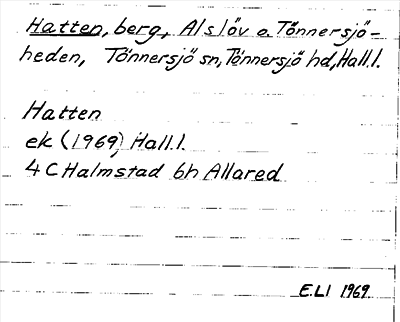 Hatten, berg, Alslöv o. Tönnersjö-
heden, Tönnersjö sn, Tönnersjö hd, Hall.l.
Hatten
ek (1969) Hall.l.
4 C Halmstad 6h Allared
E.LI 1969.